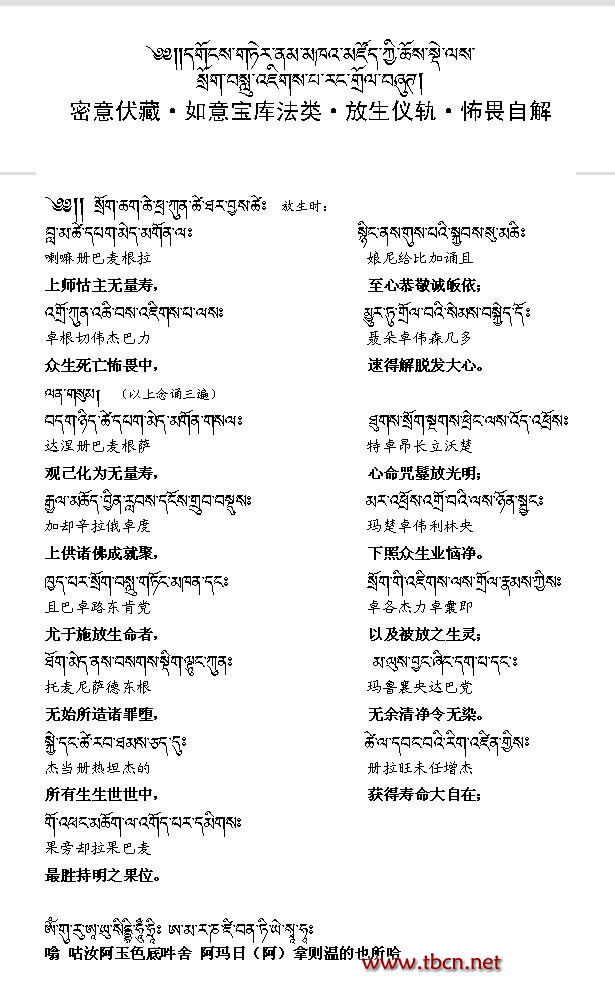 ༄༅།།དགོངས་གཏེར་ནམ་མཁའ་མཛོད་ཀྱི་ཆོས་སྡེ་ལས་
སྲོག་བསླུ་འཇིགས་པ་རང་གྲོལ་བཞུགས།
密意伏藏·如意宝库法类·放生仪轨·怖畏自解
༄༅།། སྲོག་ཆགས་ཆེ་ཕྲ་ཀུན་ཚེ་ཐར་བྱས་ཚེ༔ 放生时：
བླ་མ་ཚེ་དཔག་མེད་མགོན་ལ༔ སྙིང་ནས་གུས་པའི་སྐྱབས་སུ་མཆི༔
喇嘛册巴麦根拉 娘尼给比加诵且
上师怙主无量寿， 至心恭敬诚皈依；
འགྲོ་ཀུན་འཆི་བས་འཇིགས་པ་ལས༔ མྱུར་ཏུ་གྲོལ་བའི་སེམས་བསྐྱེད་དོ༔
卓根切伟杰巴力 聂朵卓伟森几多
众生死亡怖畏中， 速得解脱发大心。
ལན་གསུམ། （以上念诵三遍）
བདག་ཉིད་ཚེ་དཔག་མེད་མགོན་གསལ༔ ཐུགས་སྲོག་སྔགས་ཕྲེང་ལས་འོད་འཕྲོས༔
达涅册巴麦根萨 特卓昂长立沃楚
观己化为无量寿， 心命咒鬘放光明；
རྒྱལ་མཆོད་བྱིན་རླབས་དངོས་གྲུབ་བསྡུས༔ མར་འཕྲོས་འགྲོ་བའི་ལས་ཉོན་སྦྱང༔
加却辛拉俄卓度 玛楚卓伟利林央
上供诸佛成就聚， 下照众生业恼净。
ཁྱད་པར་སྲོག་བསླུ་གཏོང་མཁན་དང༔ སྲོག་གི་འཇིགས་ལས་གྲོལ་རྣམས་ཀྱིས༔
且巴卓路东肯党 卓各杰力卓囊即
尤于施放生命者， 以及被放之生灵；
ཐོག་མེད་ནས་བསགས་སྡིག་ལྟུང་ཀུན༔ མ་ལུས་བྱང་ཞིང་དག་པ་དང་༔
托麦尼萨德东根 玛鲁襄央达巴党
无始所造诸罪堕， 无余清净令无染。
སྐྱེ་དང་ཚེ་རབ་ཐམས་ཅད་དུ༔ ཚེ་ལ་དབང་བའི་རིག་འཛིན་གྱིས༔
杰当册热坦杰的 册拉旺未任增杰
所有生生世世中， 获得寿命大自在；
གོ་འཕང་མཆོག་ལ་འགོད་པར་དམིགས༔
果旁却拉果巴麦
最胜持明之果位。
ཨོཾ་གུ་རུ་ཨཱ་ཡུ་སིདྡྷི་ཧཱུྂ་ཧྲཱིཿ ཨ་མ་ར་ཎི་ཛཱི་བན་ཏི་ཡེ་སྭཱ་ཧཱ༔
嗡 咕汝阿玉色底吽舍 阿玛日（阿）拿则温的也所哈
www.tbcn.net